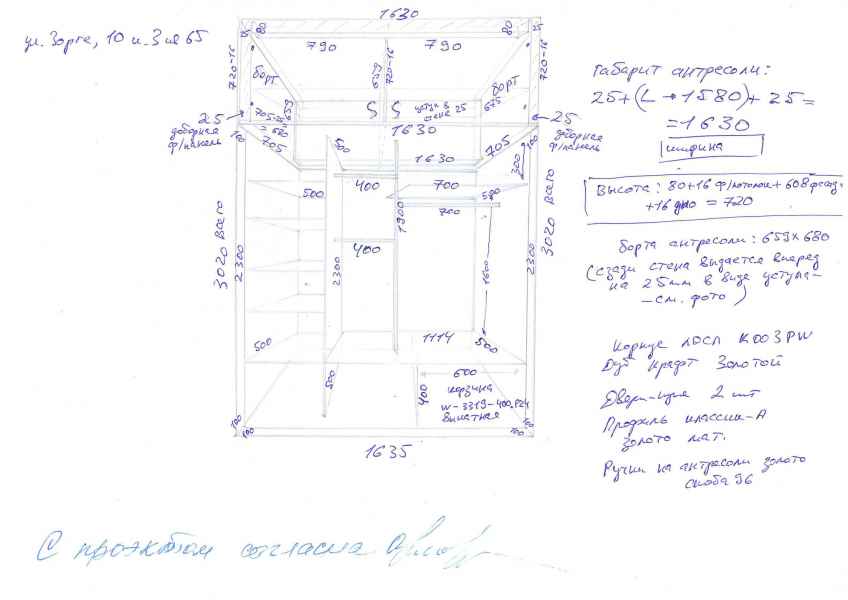 ул. Зорге, 10 и.3 кв 65
1630
15
80
80
25
790
790
720-16
659
720-16
720-16
борт
борт
705-25
=680
659
уступ в
стене 25
675
25
доборная
ф/панель
25
доборная
ф/панель
1630
100
705
500
1630
705
100
300
500
400
700
500
700
1900
400
3020 всего
2300
2300
1600
2300
3020 всего
1114
500
500
500
600
400
корзина
W-3319-400.P24
выкатная
100
100
100
100
1635
Габарит антресоли:
25+(L→1580)+25=
=1630
ширина
Высота: 80+16 ф/потолок+608фасад+
+16 дно = 720
борта антресоли: 659x680
(сзади стена выдается вперед
на 25мм в виде уступа-
-см. фото)
Корпус ЛДСП K003PW
Дуб Крафт Золотой
Двери-купе 2 шт
Профиль классик-А
золото мат.
Ручки на антресоли золото
скоба 96
С проэктом согласна